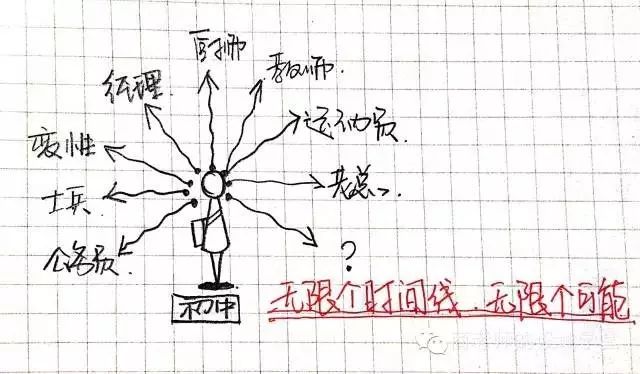 厨师
教师.
经理.
运动员.
变性
士兵
公务员.
?
初中
无限个时间线.无限个可能